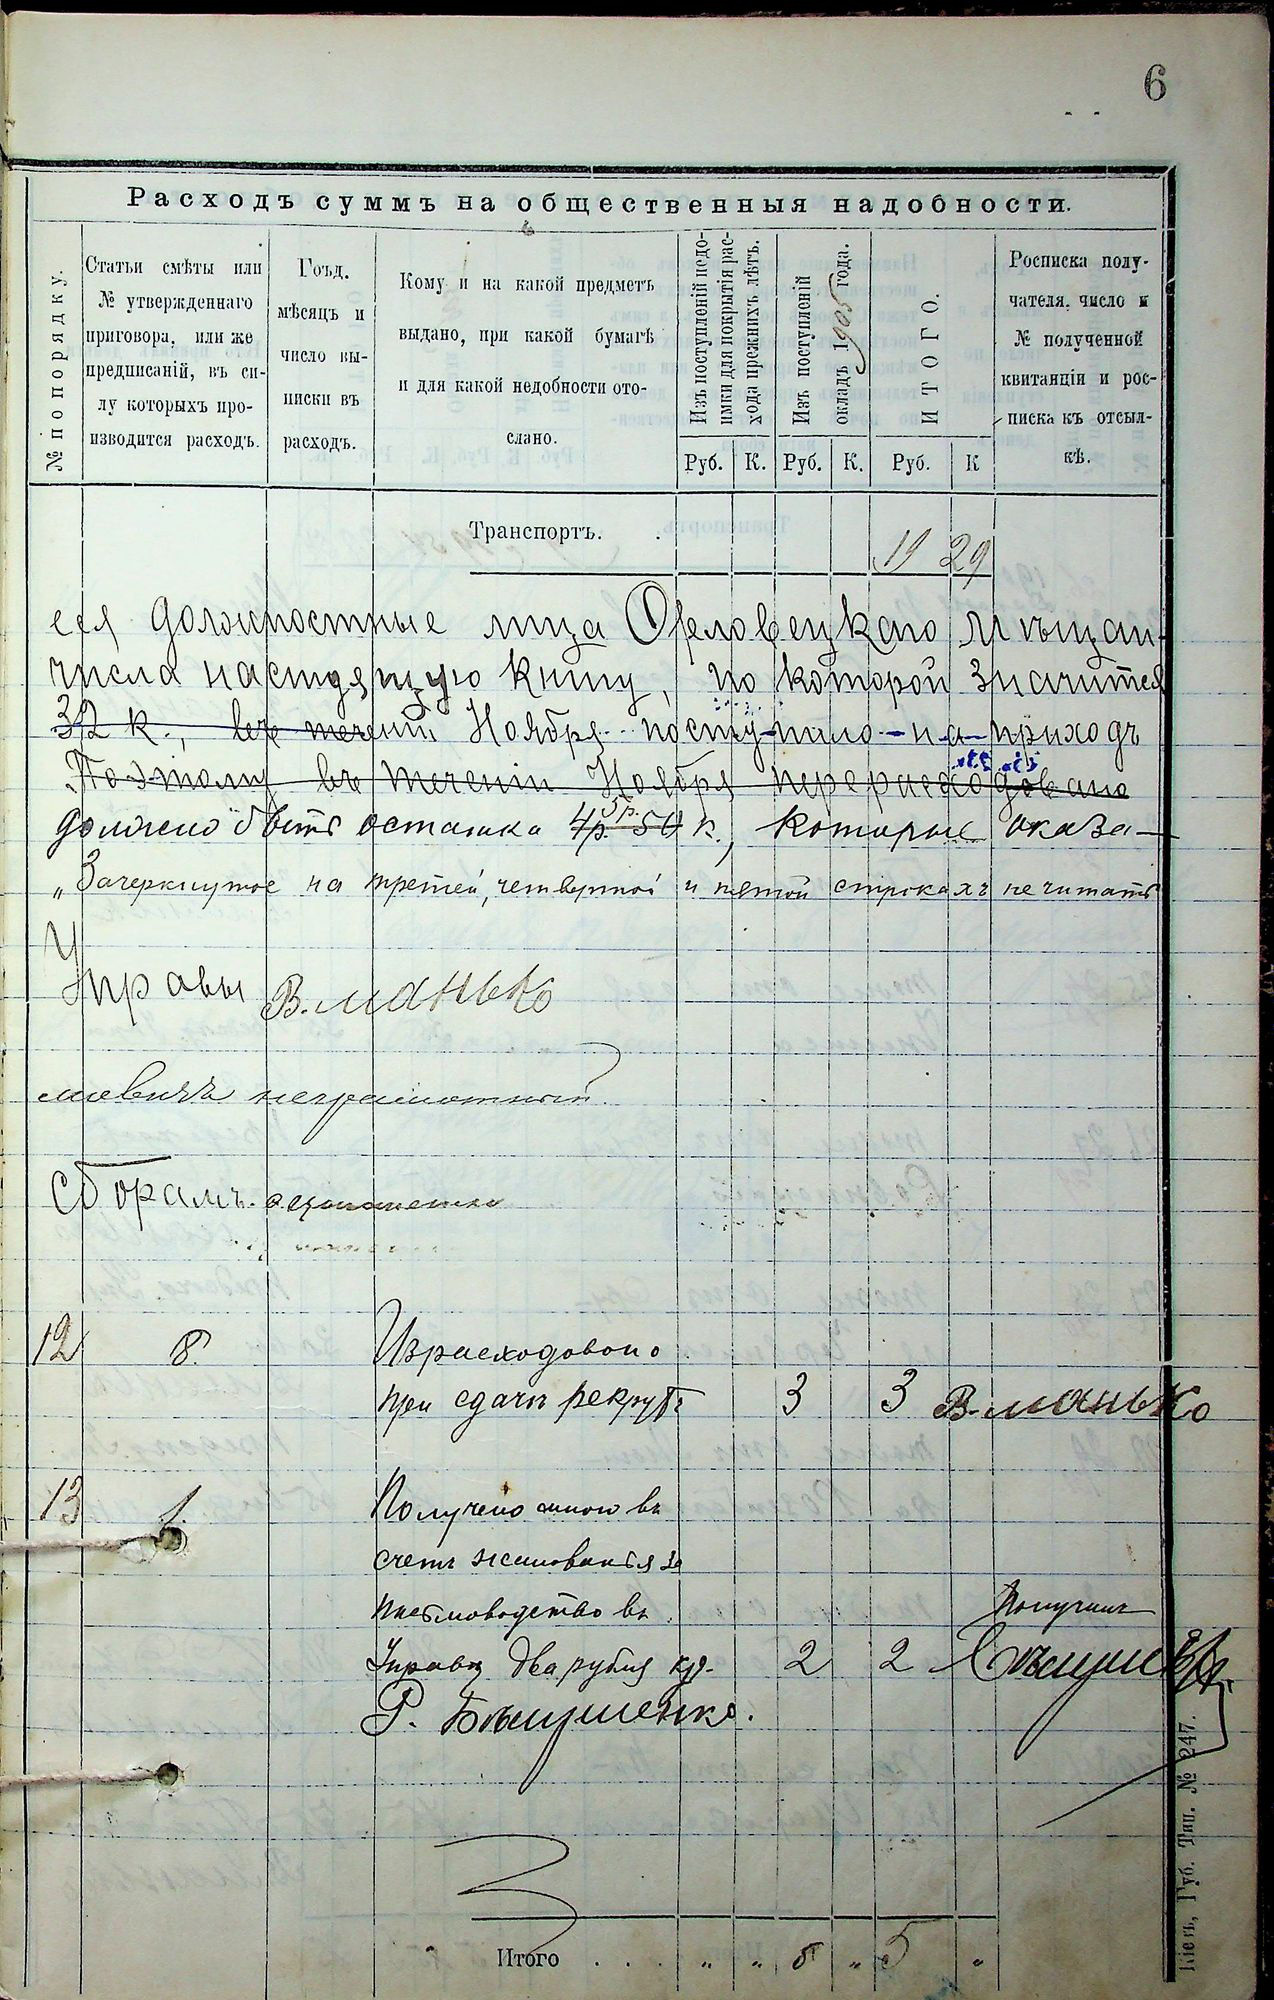 6
Расходъ суммъ на общественныя надобности.
№ по порядку.
Статьи смѣты или
№ утвержденнаго
приговора, или же
предписаній, въ си-
лу которыхъ про-
изводится расходъ.
Годъ.
мѣсяцъ и
число вы-
писки въ
расходъ.
Кому и на какой предметъ
выдано, при какой бумагѣ
и для какой недобности ото-
слано.
Изъ поступленій недо-
имки для покрытія рас-
хода прежнихъ лѣтъ.
Изъ поступленій
окладъ 1905 года.
ИТОГО.
Росписка полу-
чателя, число и
№ полученной
квитанціи и рос-
писка къ отсыл-
кѣ.
Руб. К. Руб. К. Руб. К
Транспортъ. . 19 29
еся должностные лица Орловецкаго Мѣщан-
числа настоящую книгу, по которой значится
32 к., въ течении Ноября поступило на приходъ
Поэтому въ течении Ноября перерасходовано
должно быть остатка 4р. 5р. 54 к., которые оказа-
„Зачеркнутое на третей, четвертой и пятой строкахъ не читать
Управы В. Манько
неграмотный.
сборамъ.
12 8. Израсходовоно
при сдачѣ рекрутъ 3 3 В. Манько
13 1. Получено мною въ
счетъ жалованья за
письмоводство въ
Управѣ два рубля 2 2 Получилъ
Р.
Итого . . . „ „ 5 „ 5 „
Кіевъ, Губ. Тип. № 247.